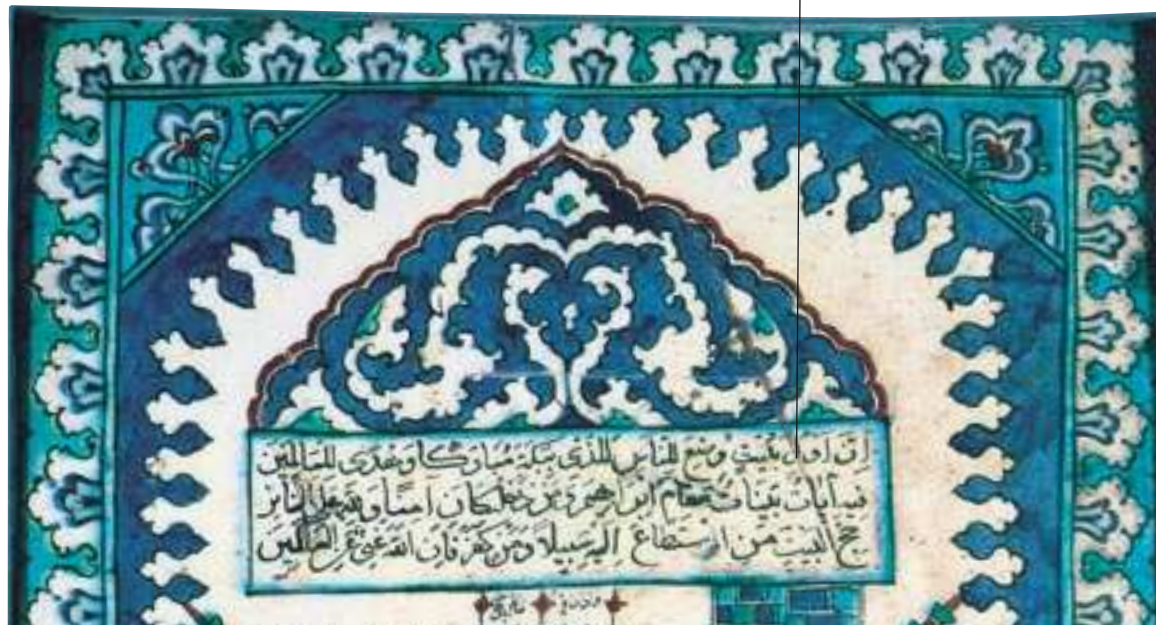 ان اول بيت وضع للناس للذى ببكة مباركا وهدى للعالمين
فيه ايات بينات مقام ابراهيم ومن دخله كان امنا ولله على الناس
حج البيت من استطاع اليه سبيلا ومن كفر فان الله غنى عن العالمين